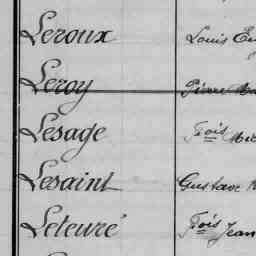 Leroux Louis
Leroy Pierre
Lesage Fçois
Lesaint Gustave
Leteuré Fçois Jean